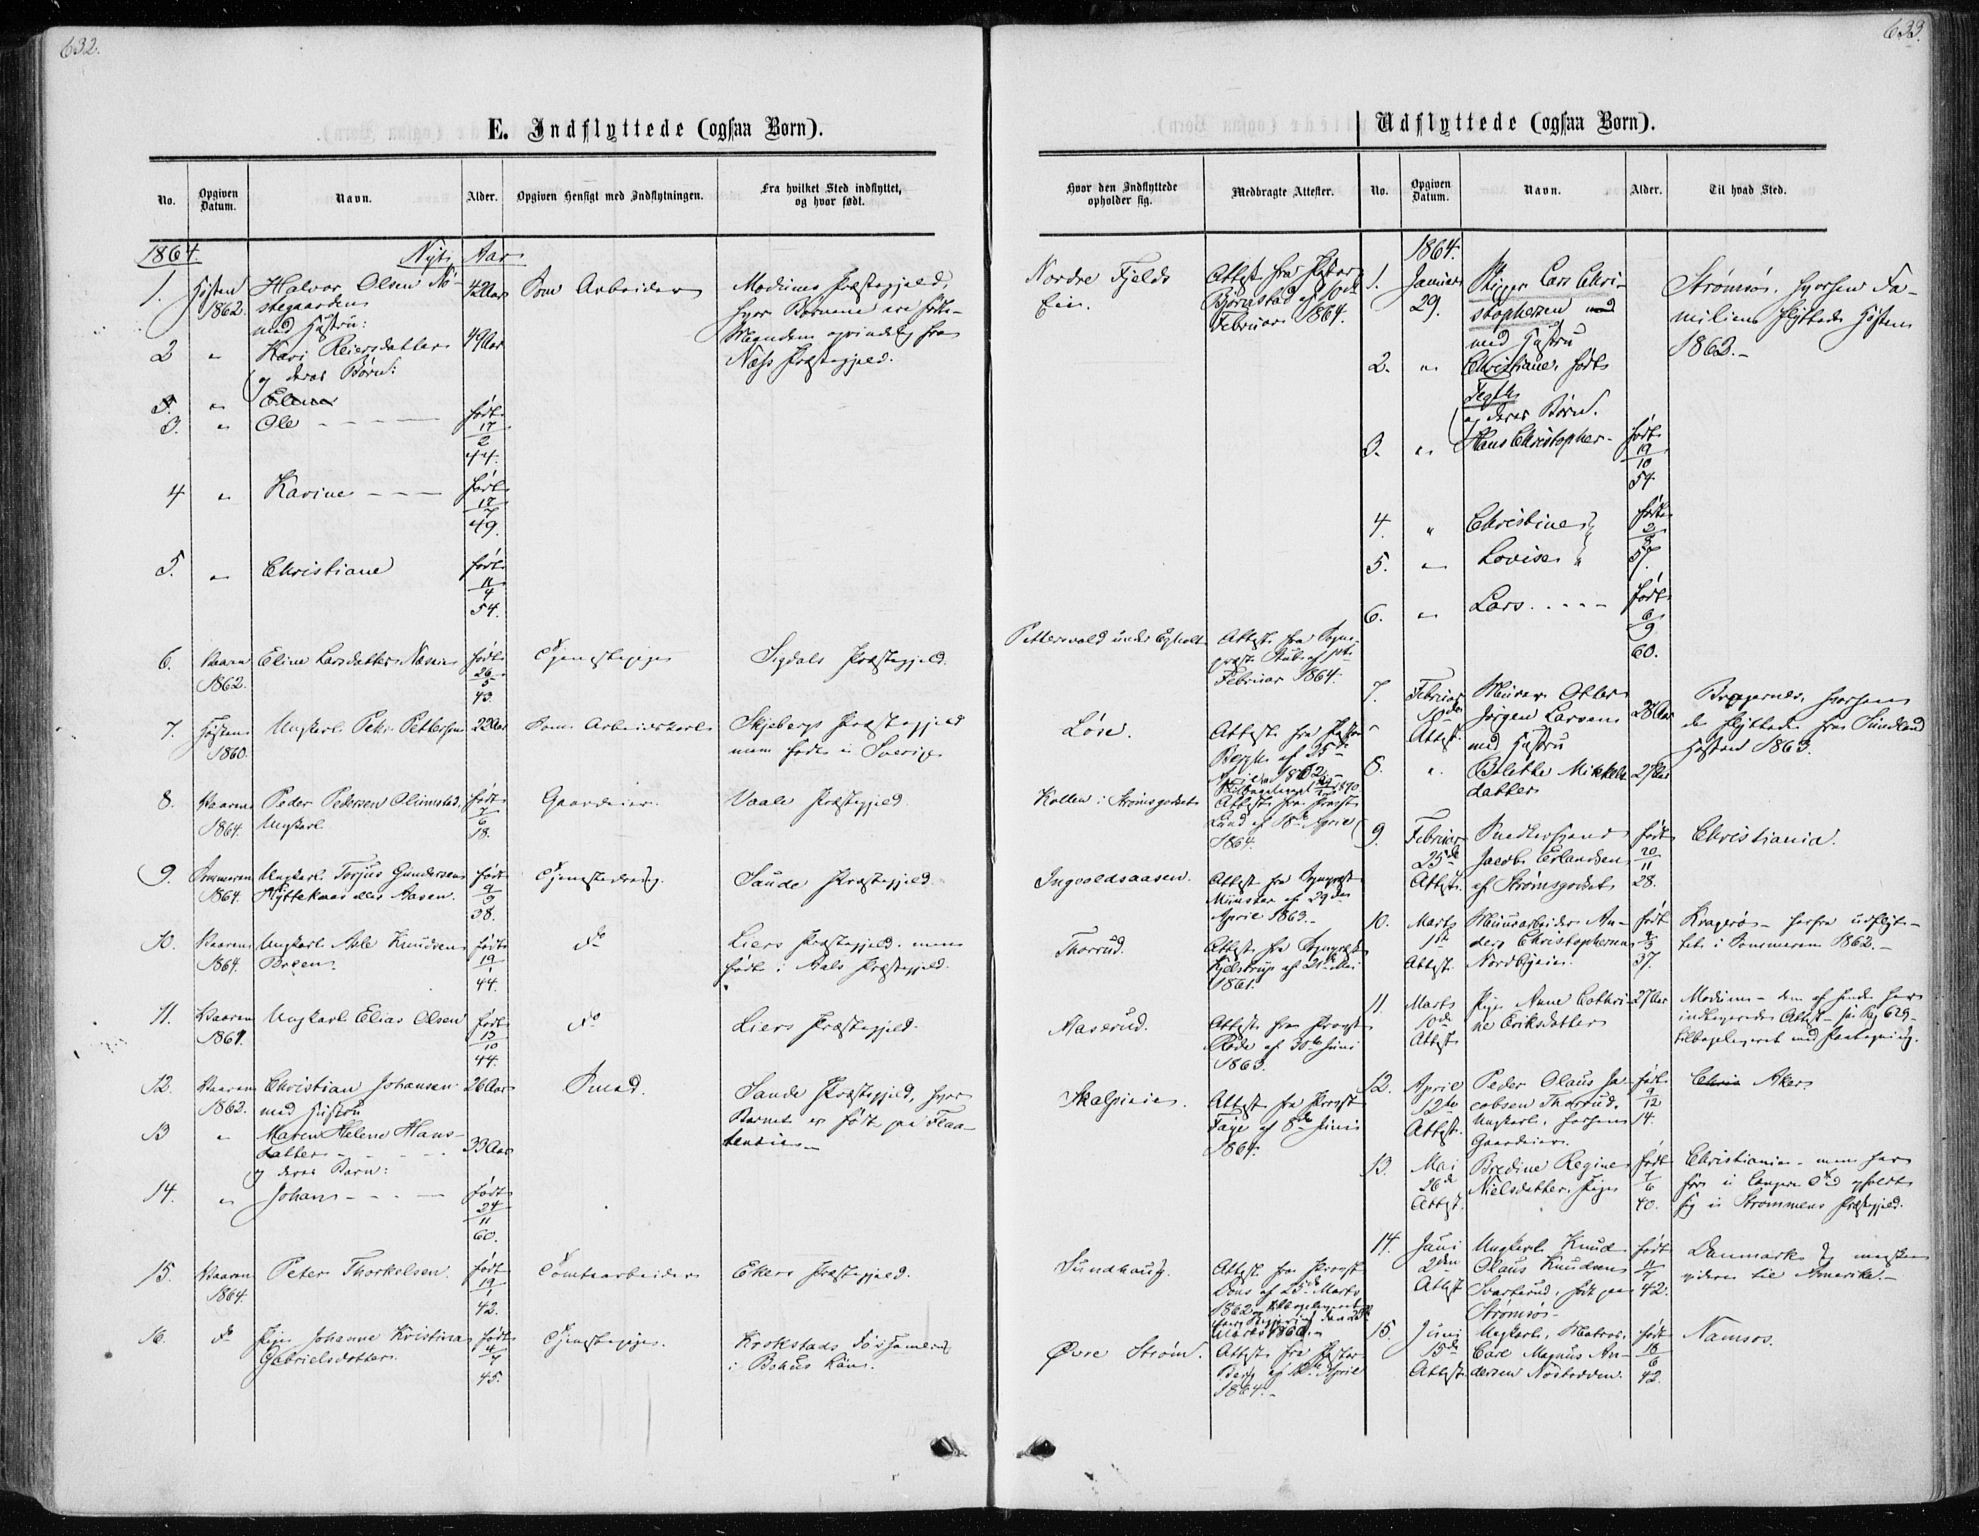 632.
E. Indflyttede (ogsaa Børn).
No.
Opgiven Datum.
Navn.
Alder.
Opgiven Hensigt med Indflytningen.
Fra hvilket Sted indflyttet, og hvor født.
Hvor den Indflyttede opholder sig.
Medbragte Attester.
1864. Nyt Aar
1. Høsten 1862. Halvor Olsen
med Hustru: 42 Aar Som Arbeider Modums Præstegjeld,
hvor Børnene ere fødte
Manden oprindelig fra
Næss Præstegjeld.
Nordre Fjelds Eie. Attest fra Pastor
Bjørnstad af
Februar 1864.
2 " Kari Reiersdatter 49 Aar
og deres Børn:
3. " Ole født 17/2 44.
4 " Karine født 17/7 49.
5. " Christiane født 11/4 54.
6. Vaaren 1862. Eline Larsdatter Næseie født 26/5 43. Tjenestepige Sigdals Præstegjeld.
Pettersvold under Egholt Attest fra Sogne-
præst Stub af
Februar 1864.
7. Høsten 1860. Ungkarl Petter Pettersen 22 Aar Som Arbeidskarl Skjeberg Præstegjeld
men født i Sverige
Løse. Attest fra Pastor
8. Vaaren 1864 Peder Pedersen Olimstad. født 7/6 18. Gaardeier. Vaale Præstegjeld.
Ungkarl
Kollen i Strømsgodset Attest fra Provst
Lund af 18de April
1864.
9. Sommeren 1864. Ungkarl Torjus Gundersen født 9/9 38. Tjenestedreng. Saude Præstegjeld.
Hyttekaas eller Aasen.
Ingvoldsaasen. Attest fra Sognepræst
Münster af 29de
April 1863.
10. Vaaren 1864. Ungkarl Asle Knudsen født 19/1 44. Do Liers Præstegjeld. men
Breen. født i Aals Præstegjeld.
Thorrud. Attest fra Sognepræst
Kjelstrup af 21de Mai
1861.
11. Vaaren 1864. Ungkarl Elias Olsen født 13/10 44. Do Liers Præstegjeld.
Maserud. Attest fra Provst
Rode af 30te Juni
1863.
12. Vaaren 1862. Christian Johansen 26 Aar Smed. Sande Præstegjeld, hvor
med Hustru Barnet er født paa
Skalpeneie. Attest fra Provst
Faye af 8de Juni
1864.
13 " Maren Helene Hans-
datter 33 Aar
og deres Barn:
14. " Johan født 24/11 60.
15. Vaaren 1864. Peter Thorkelsen. født 19/1 42. Tomtearbeider Ekers Præstegjeld.
Sundhaug. Attest fra Provst
Dons af 25de Marts
1862
16. Do Pige Johanne Kristina født 4/7 45. Tjenestepige. Krokstads Församling
Gabrielsdatter. i Bohus Län.
Øvre Strøm. Attest fra Pastor
Berg af 12te April
1864.
633.
Udflyttede (ogsaa Børn).
No.
Opgiven Datum.
Navn.
Alder.
Til hvad Sted.
1864.
1. Januar 29. Skipper Lars Chri-
stophersen
med Hustru
Strømsø, hvorhen Fa-
milien flyttede Høsten
1863.
2. " Christiane, født
og deres Børn.
3. " Hans Christopher født 19/10 54.
4. " Christine født 2/8 57.
5. " Lovise "
6. " Lars født 6/9 60.
7. Februar Attest. Murer Otter
Jørgen Larsen 28 Aar
med Hustru
Bragernes, hvorhen
de flyttede fra Sundland
Høsten 1863.
8. " Bolette Mikkels-
datter 27 Aar
9. Februar 25de Attest. Snedkersvend
Jacob Erlandsen
af Strømsgodset født 20/11 28. Christiania.
10. Marts 1ste Attest. Muurarbeider An-
ders Christophersen
Nordbyeie. født 9/3 37. Kragerø - herfra udflyt-
tet i Sommeren 1862.
11 Marts 10de Attest. Pige Anne Cathri-
ne Eriksdatter 27 Aar Modum - den af hende her
indleverede Attest - se Pag 629 -
tilbageleveret med Paategning.
12. April 12te Attest. Peder Olaus Ja-
cobsen Thorrud.
Ungkarl, forhen
Gaardeier. født 9/12 14. Aker
13. Mai 26de Attest. Bredine Regine
Nielsdatter. Pige født 7/6 40. Christiania - men har
før i længere Tid opholdt
sig i Strømmens Præstegjeld.
14. Juni 2den Attest Ungkarl Knud
Olaus Knudsen
Svarterud, født paa
Strømsø. født 11/7 42. Danmark og maaske
videre til Amerika.
15. Juni 15de Attest. Ungkarl, Matros.
Carl Magnus An-
dersen Nøstodden. født 18/6 42. Namsos.